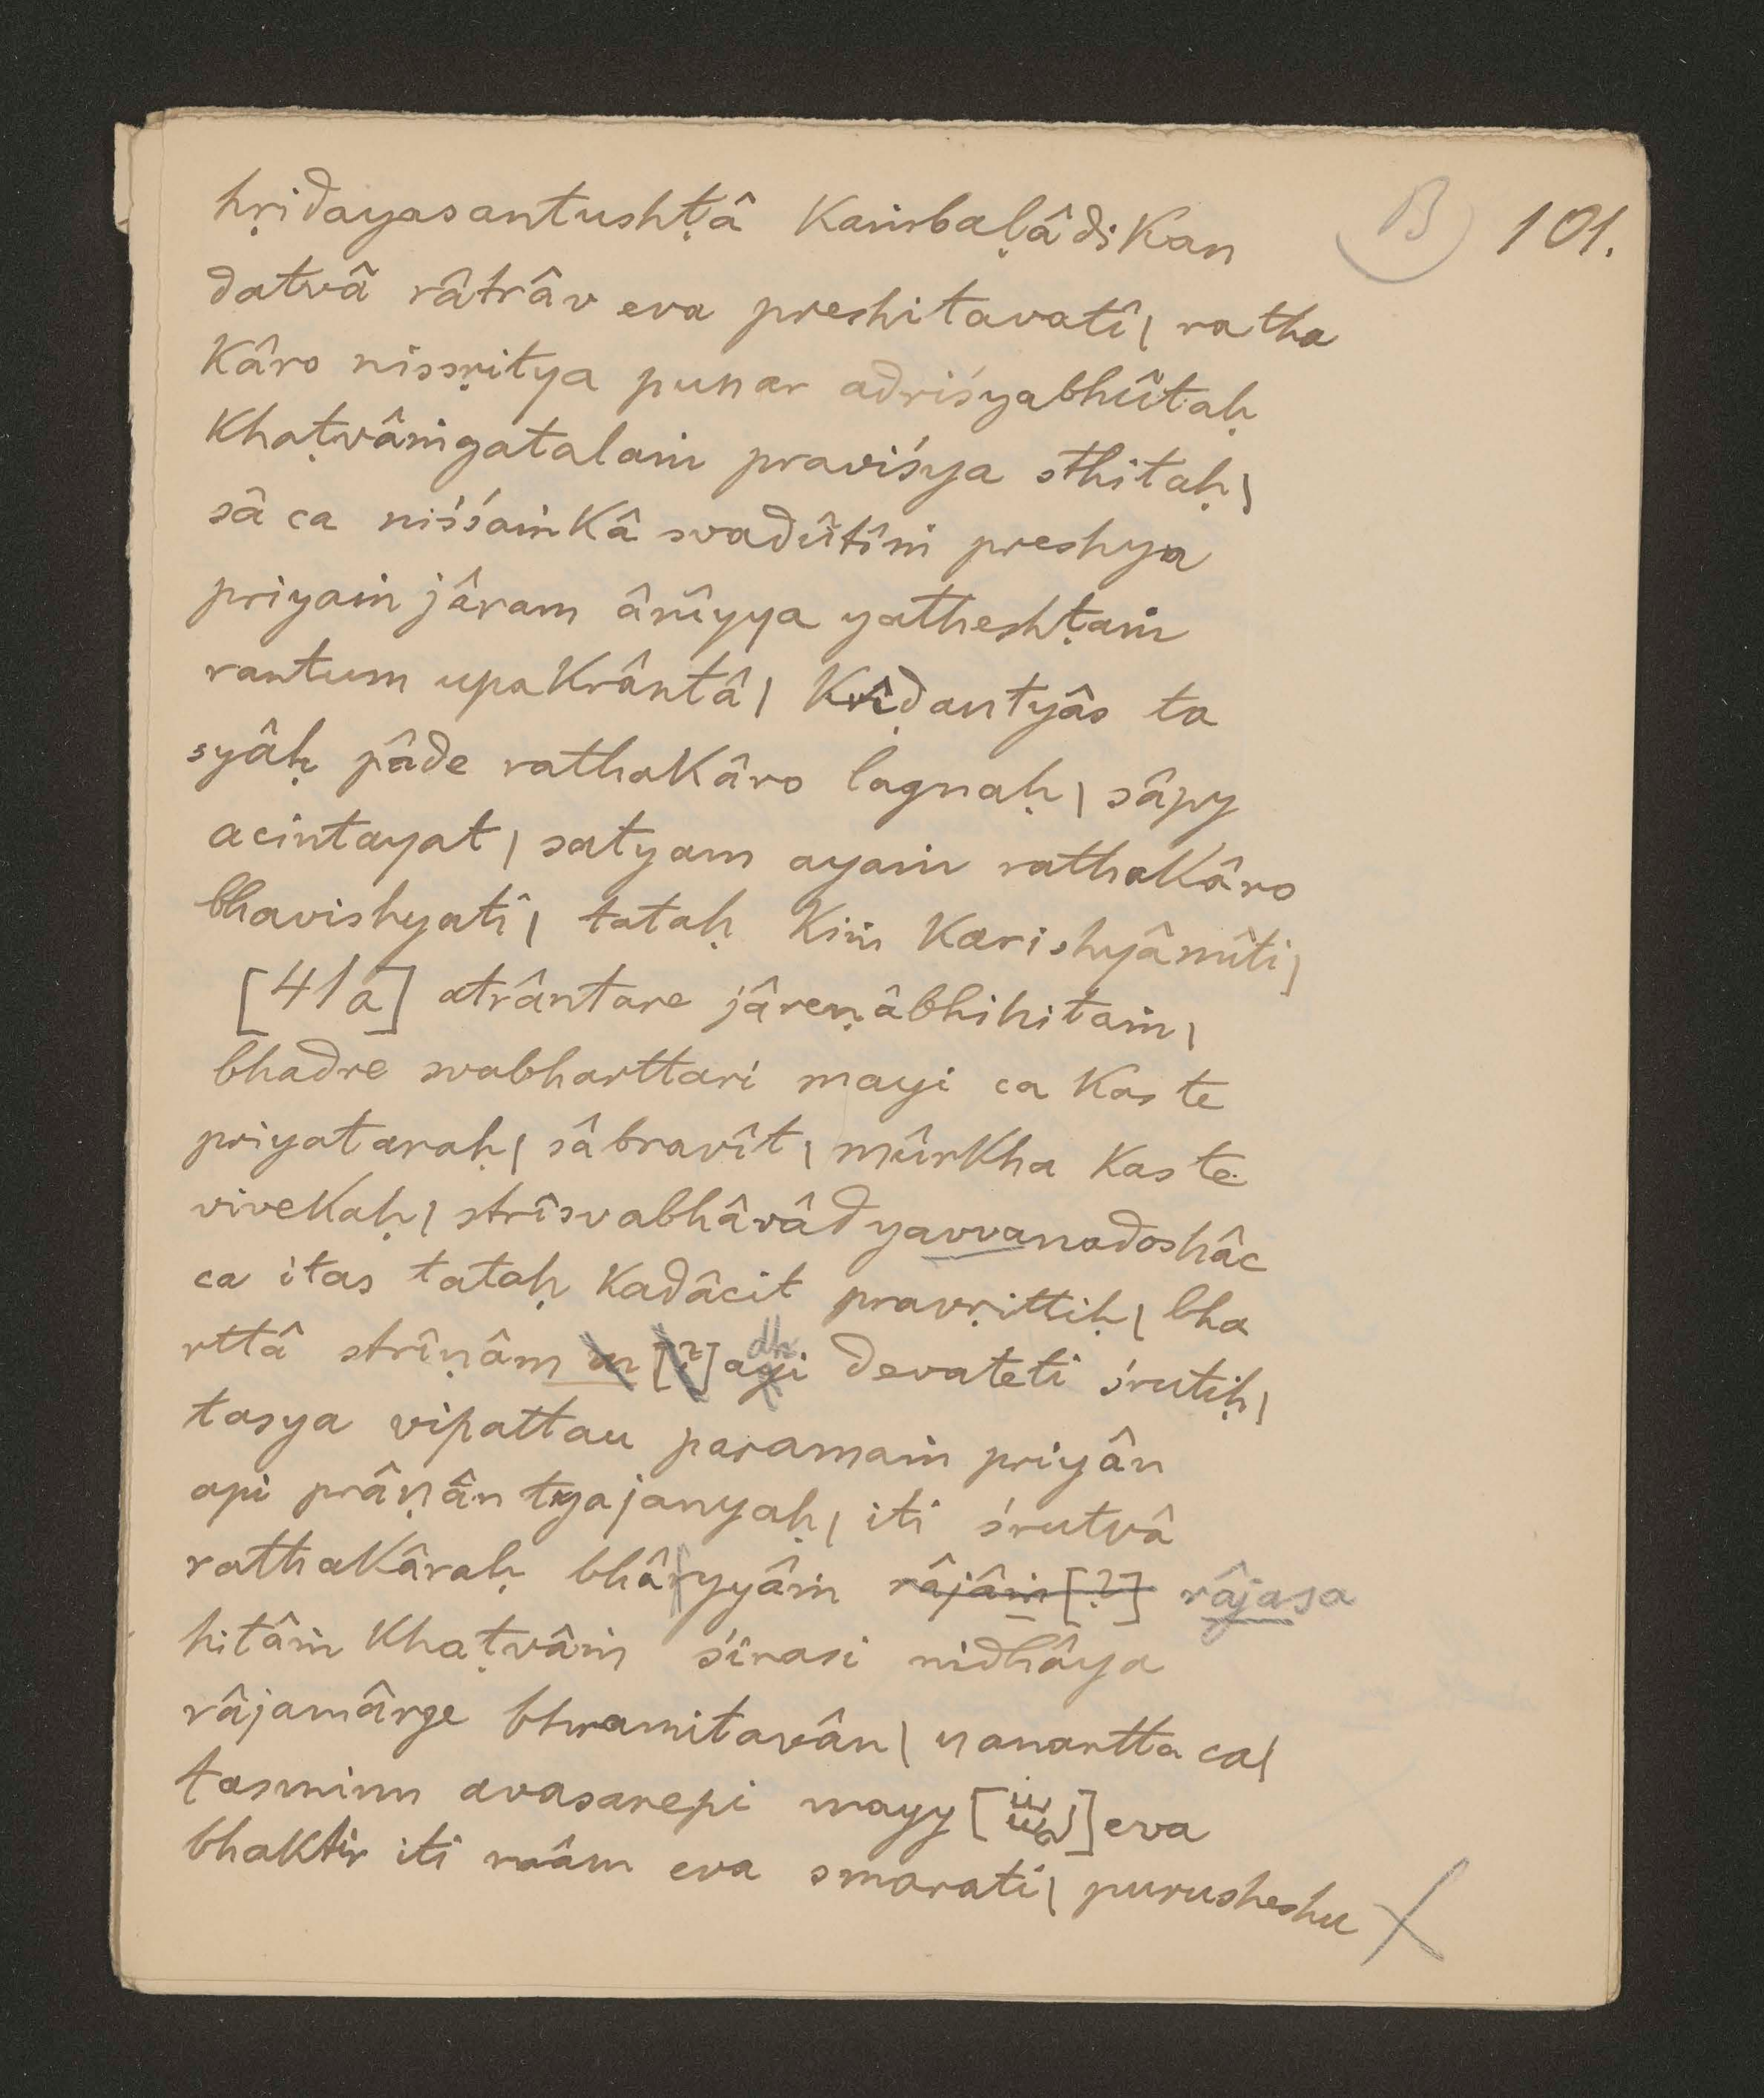 B 101.
hṛidayasantushṭâ kaṁbaḷâdikan
datvâ râtrâv eva preshitavatî| ratha
kâro nissṛitya punar adriśyabhûtaḥ
khaṭvâṁgatalaṁ praviśya sthitaḥ|
sâ ca niśśaṁkâ svadûtîṁ preshya
priyaṁ jâram ânîyya yatheshṭaṁ
rantum upakrântâ| krîḍantyâs ta
syâḥ pâde rathakâro lagnaḥ| sâpy
acintayat| satyam ayaṁ rathakâro
bhavishyati| tataḥ kiṁ karishyâmîti|
[41a] atrântare jâreṇâbhihitaṁ|
bhadre svabharttari mayi ca kas te
priyataraḥ| sâbravît| mûrkha kas te
vivekaḥ| strîsvabhâvâd yauvanadoshâc
ca itas tataḥ kadâcit pravṛittiḥ| bha
rttâ strîṇâm m [?] ayi dh devateti śrutiḥ|
tasya vipattau paramaṁ priyân
api prâṇân tyajanyaḥ| iti śrutvâ
rathakâraḥ bhâryyâṁ râjâṁ [?] râjasa
hitâṁ khaṭvâṁ śirasi nidhâya
râjamârge bhramitavân| nanartta ca|
tasminn avasarepi mayy [] eva
bhaktir iti mâm eva smarati| purusheshu